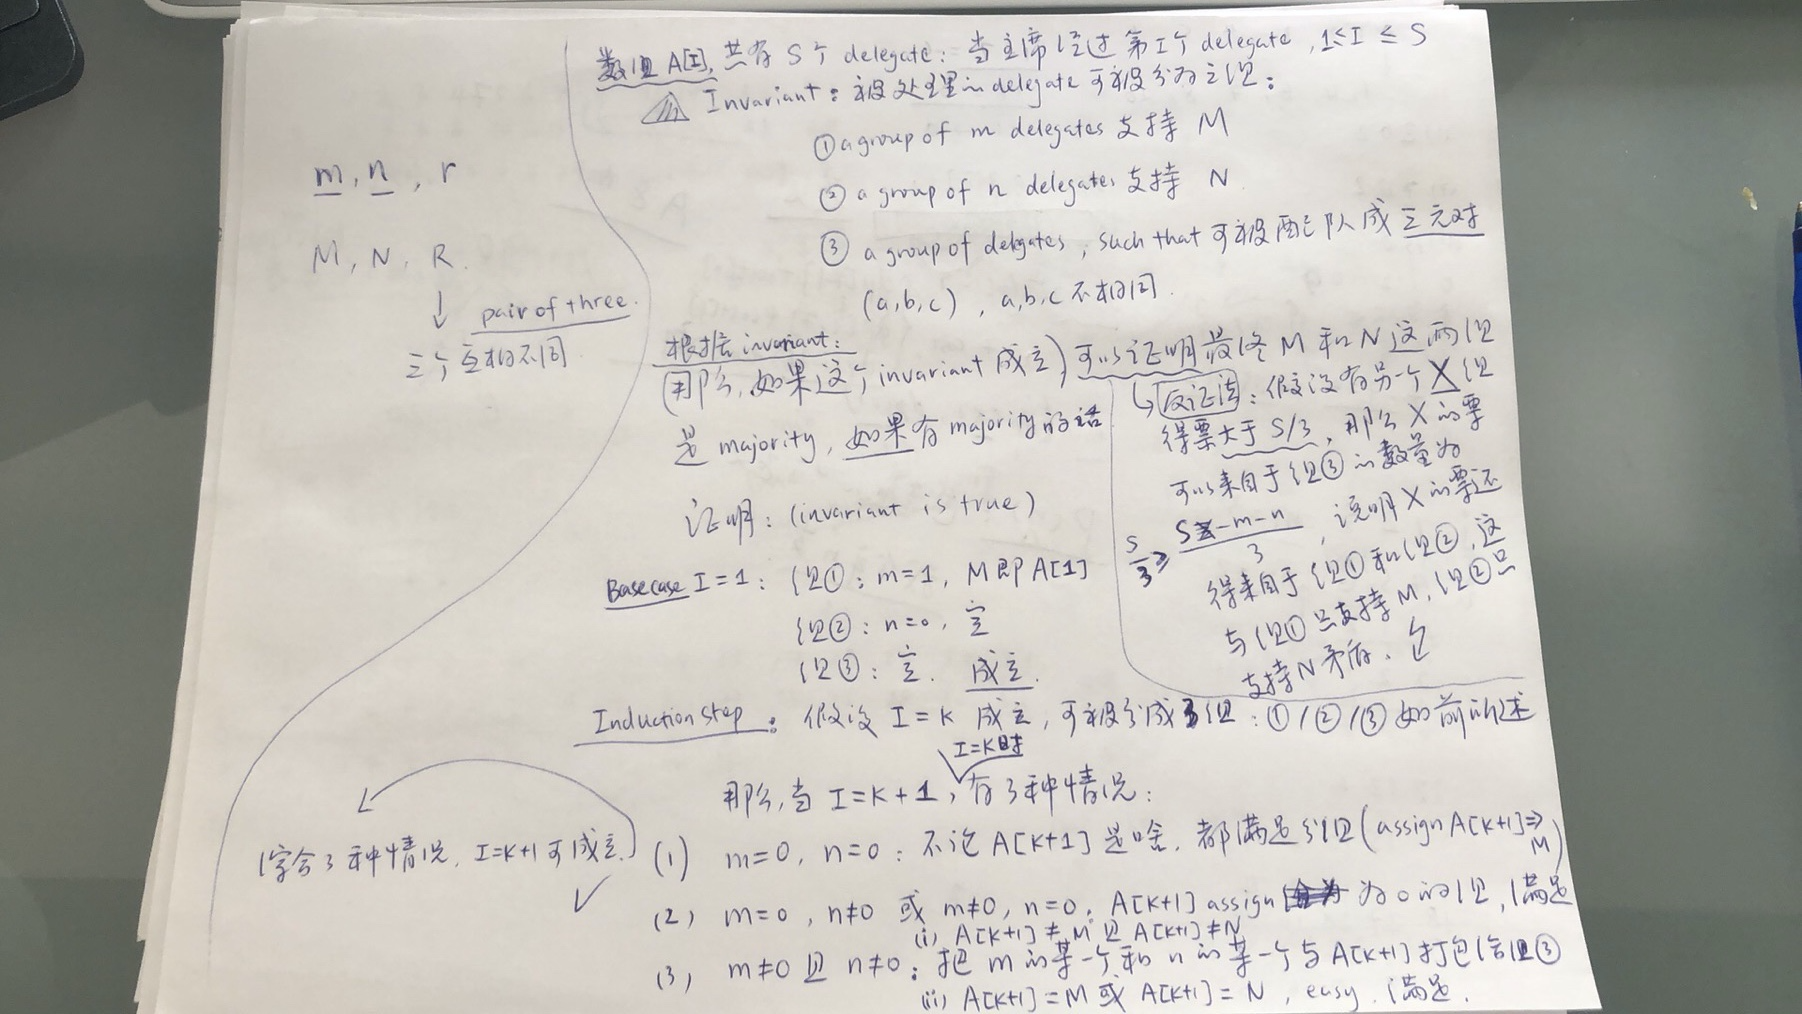 m, n, r
M, N, R.
pair of three.
三个互相不同
数组 A[I], 共有 S 个 delegate: 当主席经过第 I 个 delegate, 1≤I≤S
Invariant: 被处理的 delegate 可被分为三组:
① a group of m delegates 支持 M
② a group of n delegates 支持 N
③ a group of delegates, such that 可被配队成三元对
(a,b,c), a,b,c 不相同.
根据 invariant:
(那么, 如果这个 invariant 成立) 可以证明最终 M 和 N 这两组
是 majority, 如果有 majority 的话
反证法: 假设有另一个 X 组
得票大于 S/3, 那么 X 的票
可以来自于组③的数量为
S/3 ≥ (S-m-n)/3, 说明 X 的票还
得来自于组①和组②, 这
与组①只支持 M, 组②只
支持 N 矛盾.
证明: (invariant is true)
Base case I=1: 组①: m=1, M 即 A[1]
组②: n=0, 空
组③: 空. 成立.
Induction Step: 假设 I=K 成立, 可被分成3组: ①/②/③ 如前所述
I=K时
那么, 当 I=K+1, 有3种情况:
(1) m=0, n=0: 不论 A[K+1] 是啥, 都满足分组 (assign A[K+1]⇒M)
(2) m=0, n≠0 或 m≠0, n=0: A[K+1] assign 为 0 的组, 满足
(i) A[K+1]≠M 且 A[K+1]≠N
(3) m≠0 且 n≠0: 把 m 的某一个和 n 的某一个与 A[K+1] 打包给组③
(ii) A[K+1]=M 或 A[K+1]=N, easy. 满足.
综合3种情况, I=K+1 可成立.